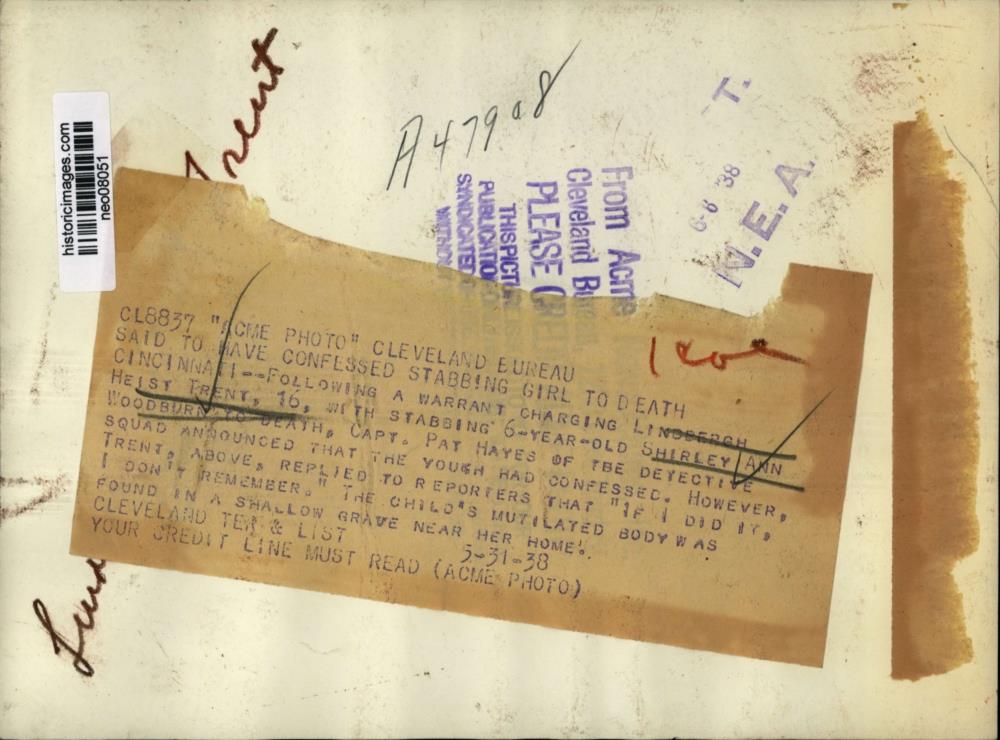 historicimages.com
neo08051
Trent
A 47908
From Acme
Cleveland Bu
PLEASE CREDIT
THIS PICTURE
PUBLICATION
SYNDICATED
WITHOUT
N.E.A. T.
6-6 '38
CL8837 "ACME PHOTO" CLEVELAND BUREAU
SAID TO HAVE CONFESSED STABBING GIRL TO DEATH
CINCINNATI--FOLLOWING A WARRANT CHARGING LINDBERGH
HEIST TRENT, 16, WITH STABBING 6-YEAR-OLD SHIRLEY ANN
WOODBURN TO DEATH, CAPT. PAT HAYES OF TBE DETECTIVE
SQUAD ANNOUNCED THAT THE YOUGH HAD CONFESSED. HOWEVER,
TRENT, ABOVE, REPLIED TO REPORTERS THAT "IF I DID IT,
I DON'T REMEMBER." THE CHILD'S MUTILATED BODY WAS
FOUND IN A SHALLOW GRAVE NEAR HER HOME.
CLEVELAND TEN & LIST 5-31-38
YOUR CREDIT LINE MUST READ (ACME PHOTO)